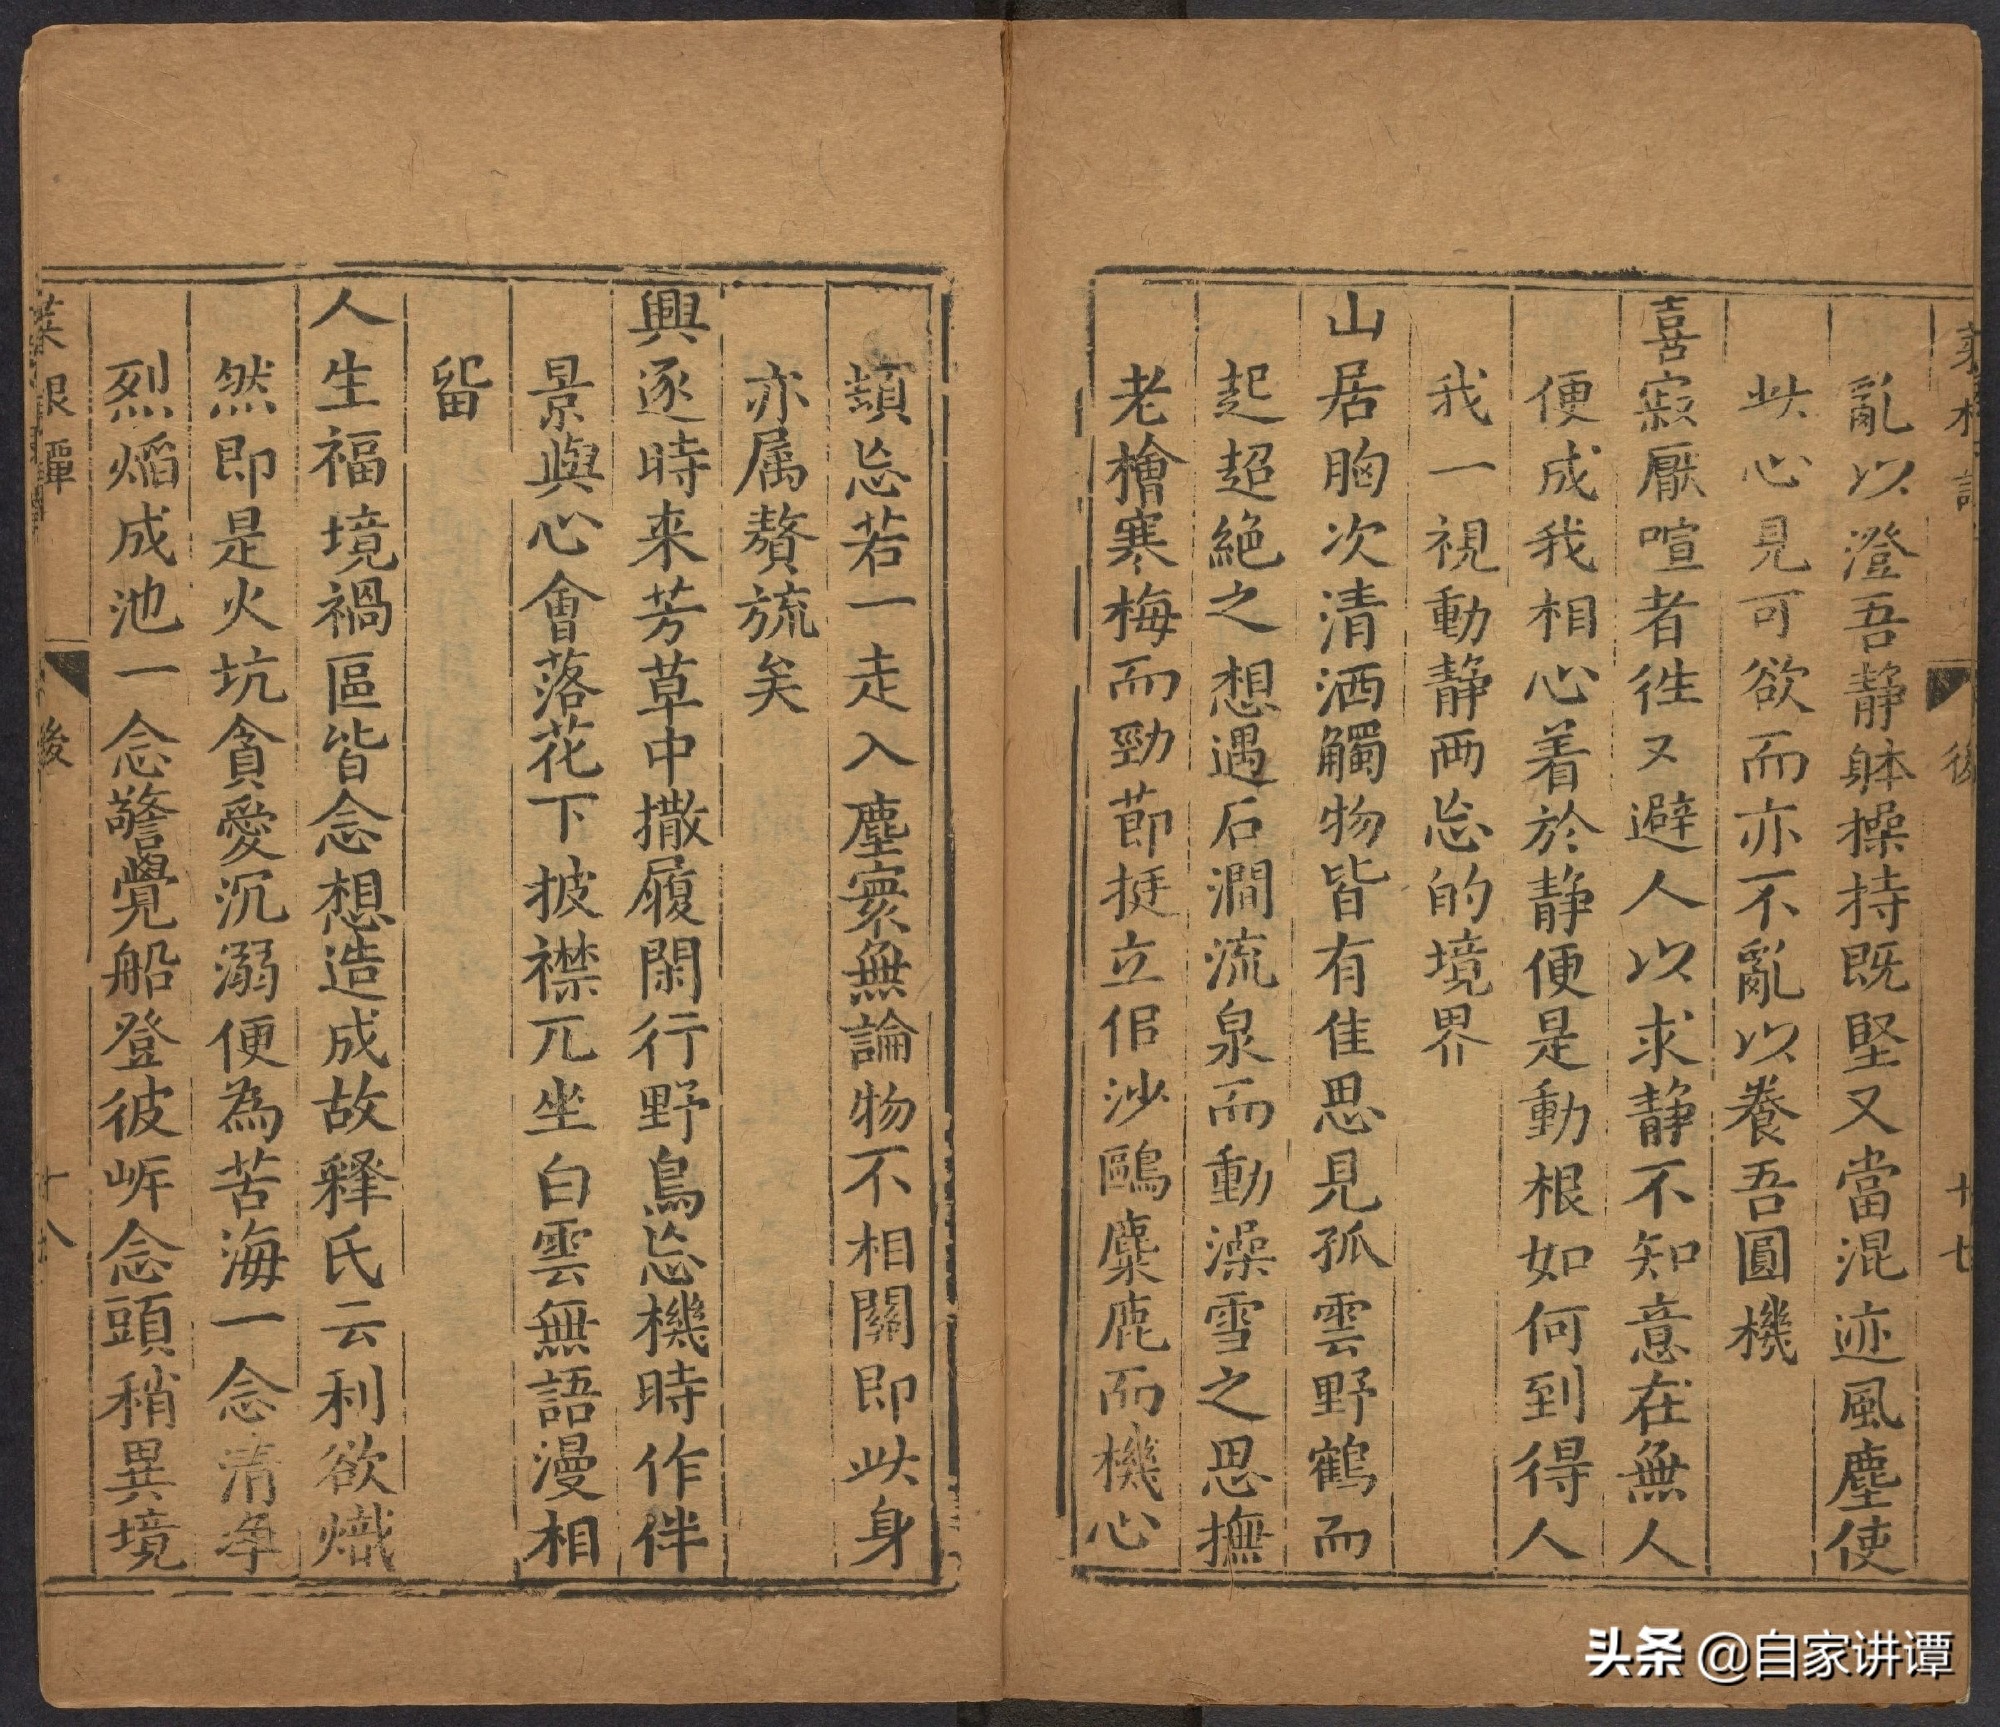 亂以澄吾静躰操持既堅又當混迹風塵使
此心見可欲而亦不亂以養吾圓機
喜寂厭喧者徃又避人以求静不知意在無人
便成我相心着於静便是動根如何到得人
我一視動静兩忘的境界
山居胸次清洒觸物皆有佳思見孤雲野鶴而
起超絶之想遇石澗流泉而動澡雪之思撫
老檜寒梅而勁莭挺立侣沙鷗麋鹿而機心
頓忘若一走入塵寰無論物不相關即此身
亦属贅旒矣
興逐時来芳草中撒履閑行野鳥忘機時作伴
景與心會落花下披襟兀坐白雲無語漫相
留
人生福境禍區皆念想造成故釋氏云利欲熾
然即是火坑貪愛沉溺便為苦海一念清净
烈焰成池一念警覺船登彼岸念頭稍異境
菜根譚
後
十八
後
十七
头条 @自家讲谭